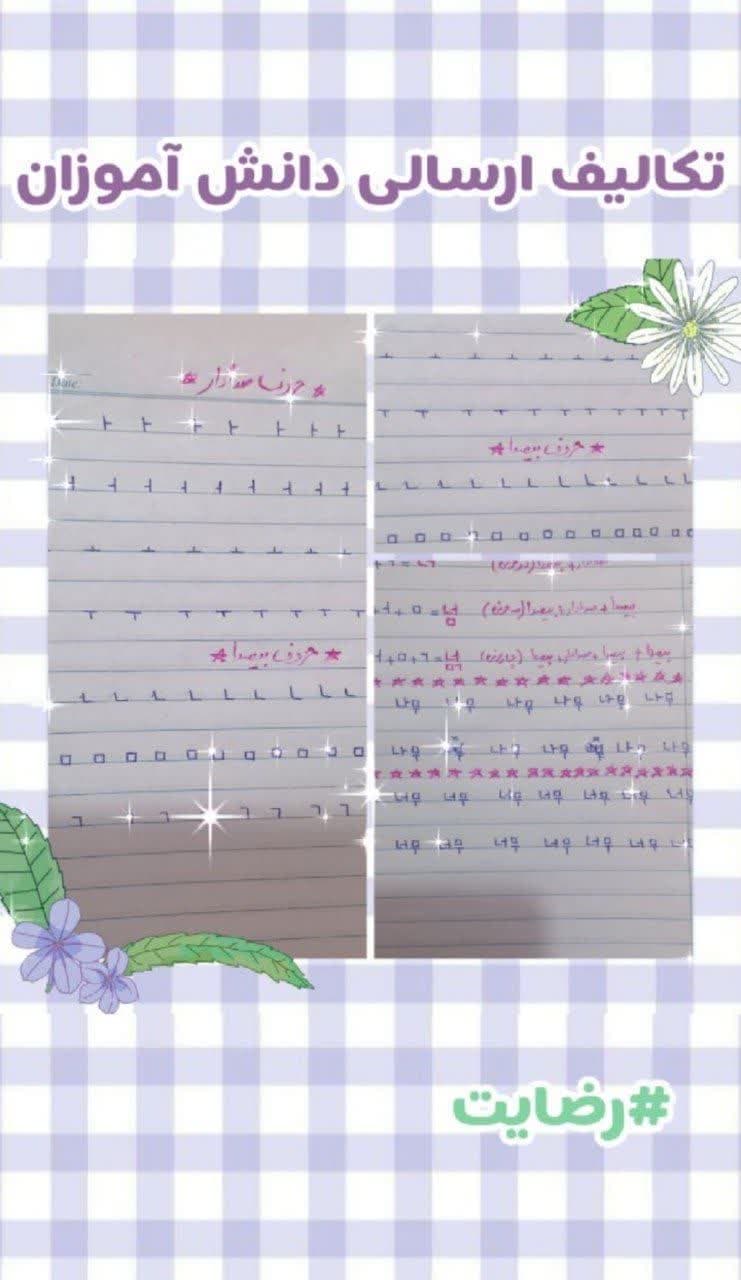 تکالیف ارسالی دانش آموزان
Date:
★ حروف صدادار ★
ㅏ ㅏ ㅏ ㅏ ㅏ ㅏ ㅏ
ㅓ ㅓ ㅓ ㅓ ㅓ ㅓ ㅓ ㅓ ㅓ
ㅗ ㅗ ㅗ ㅗ ㅗ ㅗ ㅗ
ㅜ ㅜ ㅜ ㅜ ㅜ ㅜ ㅜ
★ حروف بیصدا ★
ㄴ ㄴ ㄴ ㄴ ㄴ ㄴ ㄴ ㄴ ㄴ
ㅁ ㅁ ㅁ ㅁ ㅁ ㅁ ㅁ ㅁ ㅁ ㅁ
ㄱ ㄱ ㄱ ㄱ ㄱ ㄱ ㄱ
ㅗ ㅗ ㅗ ㅗ ㅗ ㅗ ㅗ
ㅜ ㅜ ㅜ ㅜ ㅜ ㅜ ㅜ ㅜ ㅜ ㅜ
★ حروف بیصدا ★
ㄴ ㄴ ㄴ ㄴ ㄴ ㄴ ㄴ ㄴ ㄴ ㄴ ㄴ
ㅁ ㅁ ㅁ ㅁ ㅁ ㅁ ㅁ ㅁ ㅁ ㅁ ㅁ ㅁ
بیصدا + صدادار + بیصدا
بیصدا + صدادار + بیصدا + بیصدا
나무 나무 나무 나무 나무 나무
나무 나무 나무 나무 나무
너무 너무 너무 너무 너무 너무 너무
너무 너무 너무 너무 너무 너무
#رضایت